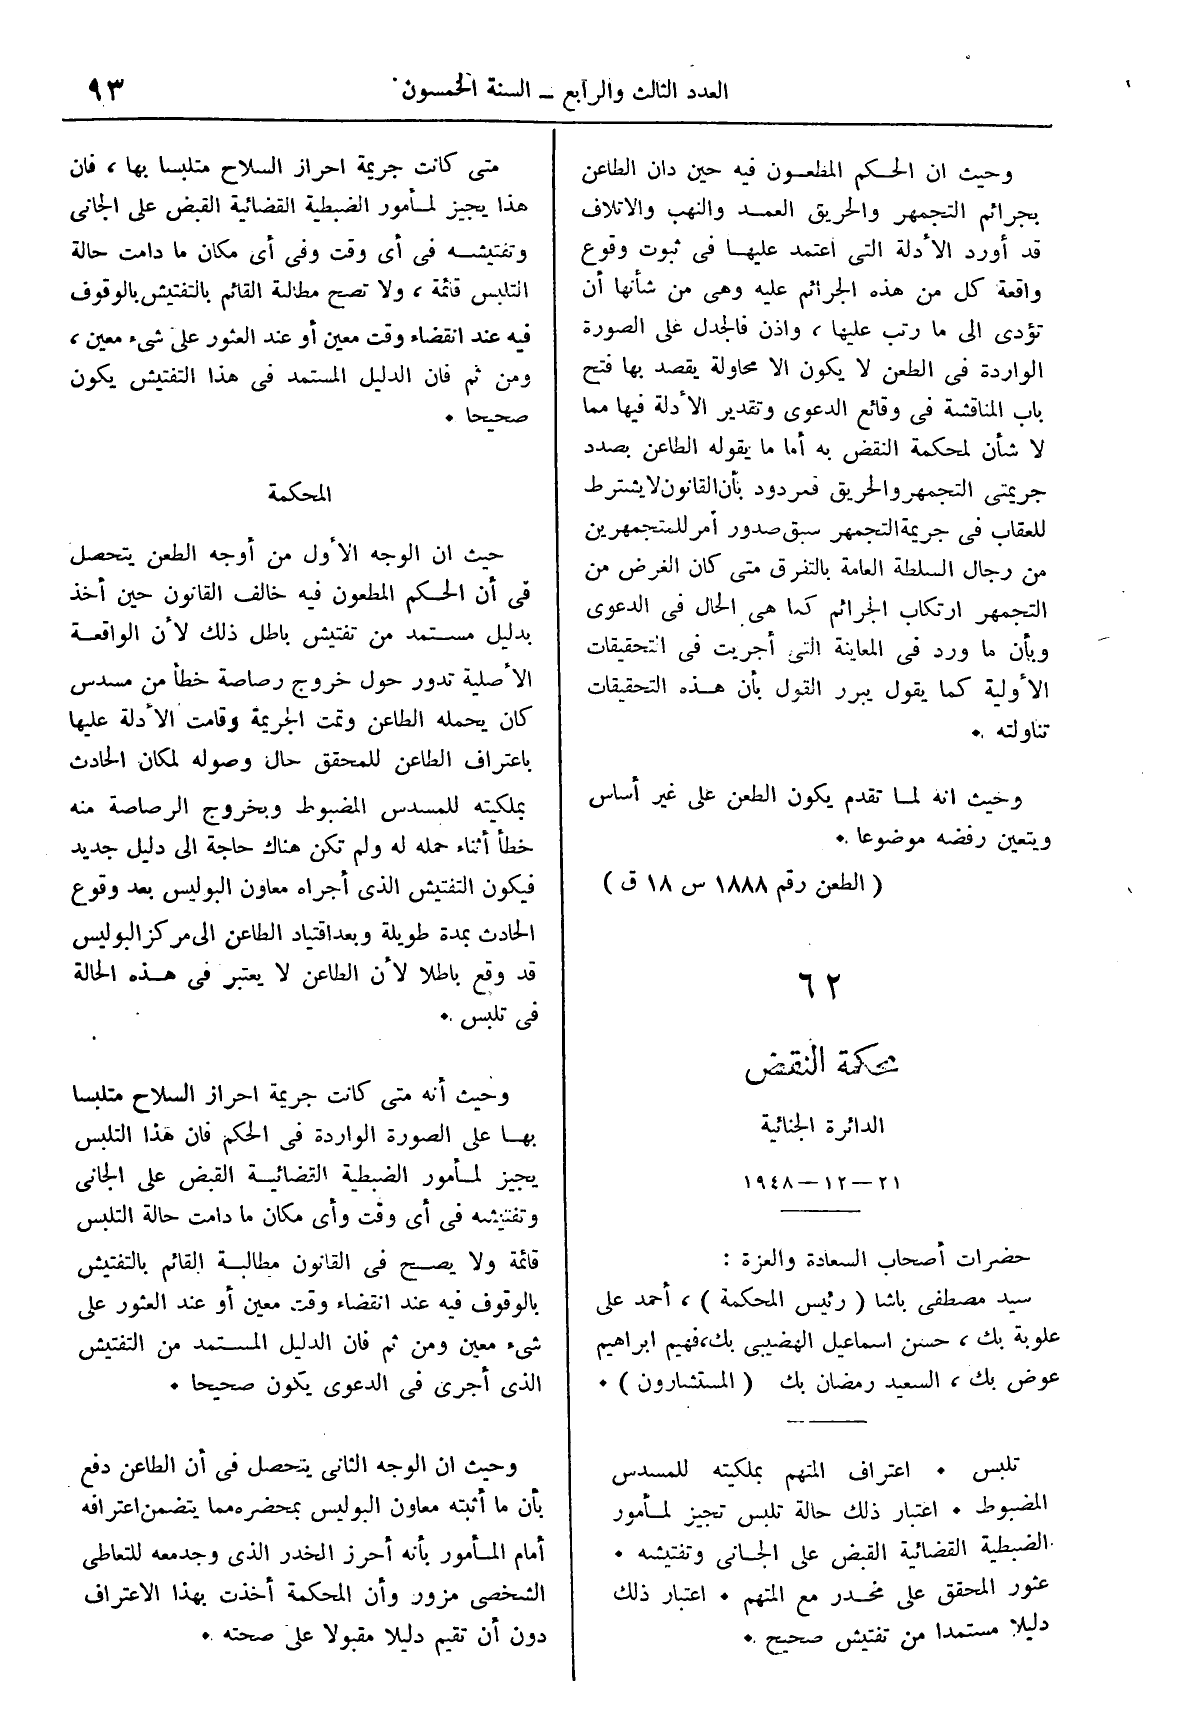 العدد الثالث والرابع – السنة الخمسون
٩٣
وحيث ان الحكم المطعون فيه حين دان الطاعن
بجرائم التجمهر والحريق العمد والنهب والاتلاف
قد أورد الأدلة التى اعتمد عليها فى ثبوت وقوع
واقعة كل من هذه الجرائم عليه وهى من شأنها أن
تؤدى الى ما رتب عليها ، واذن فالجدل على الصورة
الواردة فى الطعن لا يكون الا محاولة يقصد بها فتح
باب المناقشة فى وقائع الدعوى وتقدير الأدلة فيها مما
لا شأن لمحكمة النقض به أما ما يقوله الطاعن بصدد
جريمتى التجمهر والحريق فمردود بأن القانون لا يشترط
للعقاب فى جريمة التجمهر سبق صدور أمر للمتجمهرين
من رجال السلطة العامة بالتفرق متى كان الغرض من
التجمهر ارتكاب الجرائم كما هى الحال فى الدعوى
وبأن ما ورد فى المعاينة التى أجريت فى التحقيقات
الأولية كما يقول يبرر القول بأن هذه التحقيقات
تناولته .
وحيث انه لما تقدم يكون الطعن على غير أساس
ويتعين رفضه موضوعا .
( الطعن رقم ١٨٨٨ س ١٨ ق )
٦٢
محكمة النقض
الدائرة الجنائية
٢١–١٢–١٩٤٨
حضرات أصحاب السعادة والعزة :
سيد مصطفى باشا ( رئيس المحكمة ) ، أحمد على
علوبة بك ، حسن اسماعيل الهضيبى بك، فهيم ابراهيم
عوض بك ، السعيد رمضان بك ( المستشارون ) .
تلبس . اعتراف المتهم بملكيته للمسدس
المضبوط . اعتبار ذلك حالة تلبس تجيز لمأمور
الضبطية القضائية القبض على الجانى وتفتيشه .
عثور المحقق على مخدر مع المتهم . اعتبار ذلك
دليلا مستمدا من تفتيش صحيح .
متى كانت جريمة احراز السلاح متلبسا بها ، فان
هذا يجيز لمأمور الضبطية القضائية القبض على الجانى
وتفتيشه فى أى وقت وفى أى مكان ما دامت حالة
التلبس قائمة ، ولا تصح مطالبة القائم بالتفتيش بالوقوف
فيه عند انقضاء وقت معين أو عند العثور على شىء معين ،
ومن ثم فان الدليل المستمد فى هذا التفتيش يكون
صحيحا .
المحكمة
حيث ان الوجه الأول من أوجه الطعن يتحصل
فى أن الحكم المطعون فيه خالف القانون حين أخذ
بدليل مستمد من تفتيش باطل ذلك لأن الواقعة
الأصلية تدور حول خروج رصاصة خطأ من مسدس
كان يحمله الطاعن وتمت الجريمة وقامت الأدلة عليها
باعتراف الطاعن للمحقق حال وصوله لمكان الحادث
بملكيته للمسدس المضبوط وبخروج الرصاصة منه
خطأ أثناء حمله له ولم تكن هناك حاجة الى دليل جديد
فيكون التفتيش الذى أجراه معاون البوليس بعد وقوع
الحادث بمدة طويلة وبعد اقتياد الطاعن الى مركز البوليس
قد وقع باطلا لأن الطاعن لا يعتبر فى هذه الحالة
فى تلبس .
وحيث أنه متى كانت جريمة احراز السلاح متلبسا
بها على الصورة الواردة فى الحكم فان هذا التلبس
يجيز لمأمور الضبطية القضائية القبض على الجانى
وتفتيشه فى أى وقت وأى مكان ما دامت حالة التلبس
قائمة ولا يصح فى القانون مطالبة القائم بالتفتيش
بالوقوف فيه عند انقضاء وقت معين أو عند العثور على
شىء معين ومن ثم فان الدليل المستمد من التفتيش
الذى أجرى فى الدعوى يكون صحيحا .
وحيث ان الوجه الثانى يتحصل فى أن الطاعن دفع
بأن ما أثبته معاون البوليس بمحضره مما يتضمن اعترافه
أمام المأمور بأنه أحرز المخدر الذى وجد معه للتعاطى
الشخصى مزور وأن المحكمة أخذت بهذا الاعتراف
دون أن تقيم دليلا مقبولا على صحته .